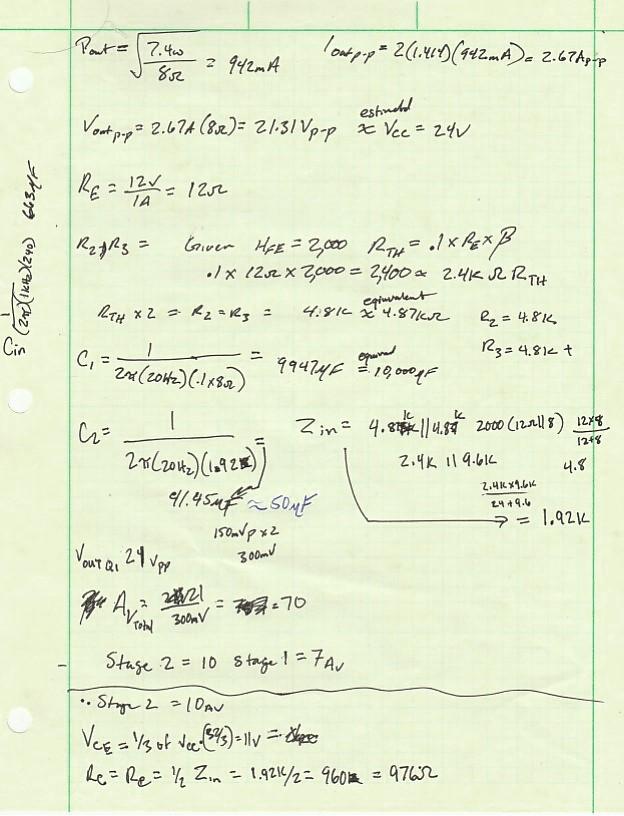 Pout = √(7.4w / 8Ω) = 942mA   Ioutp-p = 2(1.414)(942mA) = 2.67Ap-p
Voutp-p = 2.67A(8Ω) = 21.31Vp-p estimated ≈ Vcc = 24V
RE = 12V / 1A = 12Ω
R2 & R3 = Given HFE = 2,000 RTH = .1 x RE x β
.1 x 12Ω x 2,000 = 2,400 = 2.4K Ω RTH
RTH x 2 = R2 = R3 = 4.81K equivalent ≈ 4.87KΩ   R2 = 4.8K
R3 = 4.81K +
C1 = 1 / 2π(20Hz)(.1x8Ω) = 9947μF equival = 10,000μF
C2 = 1 / 2π(20Hz)(1.92K) =
41.45μF ≈ 50μF
Zin = 4.8K || 4.8K 2000(12Ω||8) 12x8 / 12+8
2.4K || 9.6K 4.8
2.4K x 9.6K / 24+9.6
= 1.92K
150mVp x 2
300mV
VOUT Q1 21 Vpp
AV Total = 21 / 300mV = 70
Stage 2 = 10 Stage 1 = 7Av
∴ Stage 2 = 10Av
VCE = 1/3 of Vcc (32/3) = 11V =
Rc = Re = 1/2 Zin = 1.92K/2 = 960 = 976Ω
Cin 1 / (2π)(1kHz)(240) 663μF